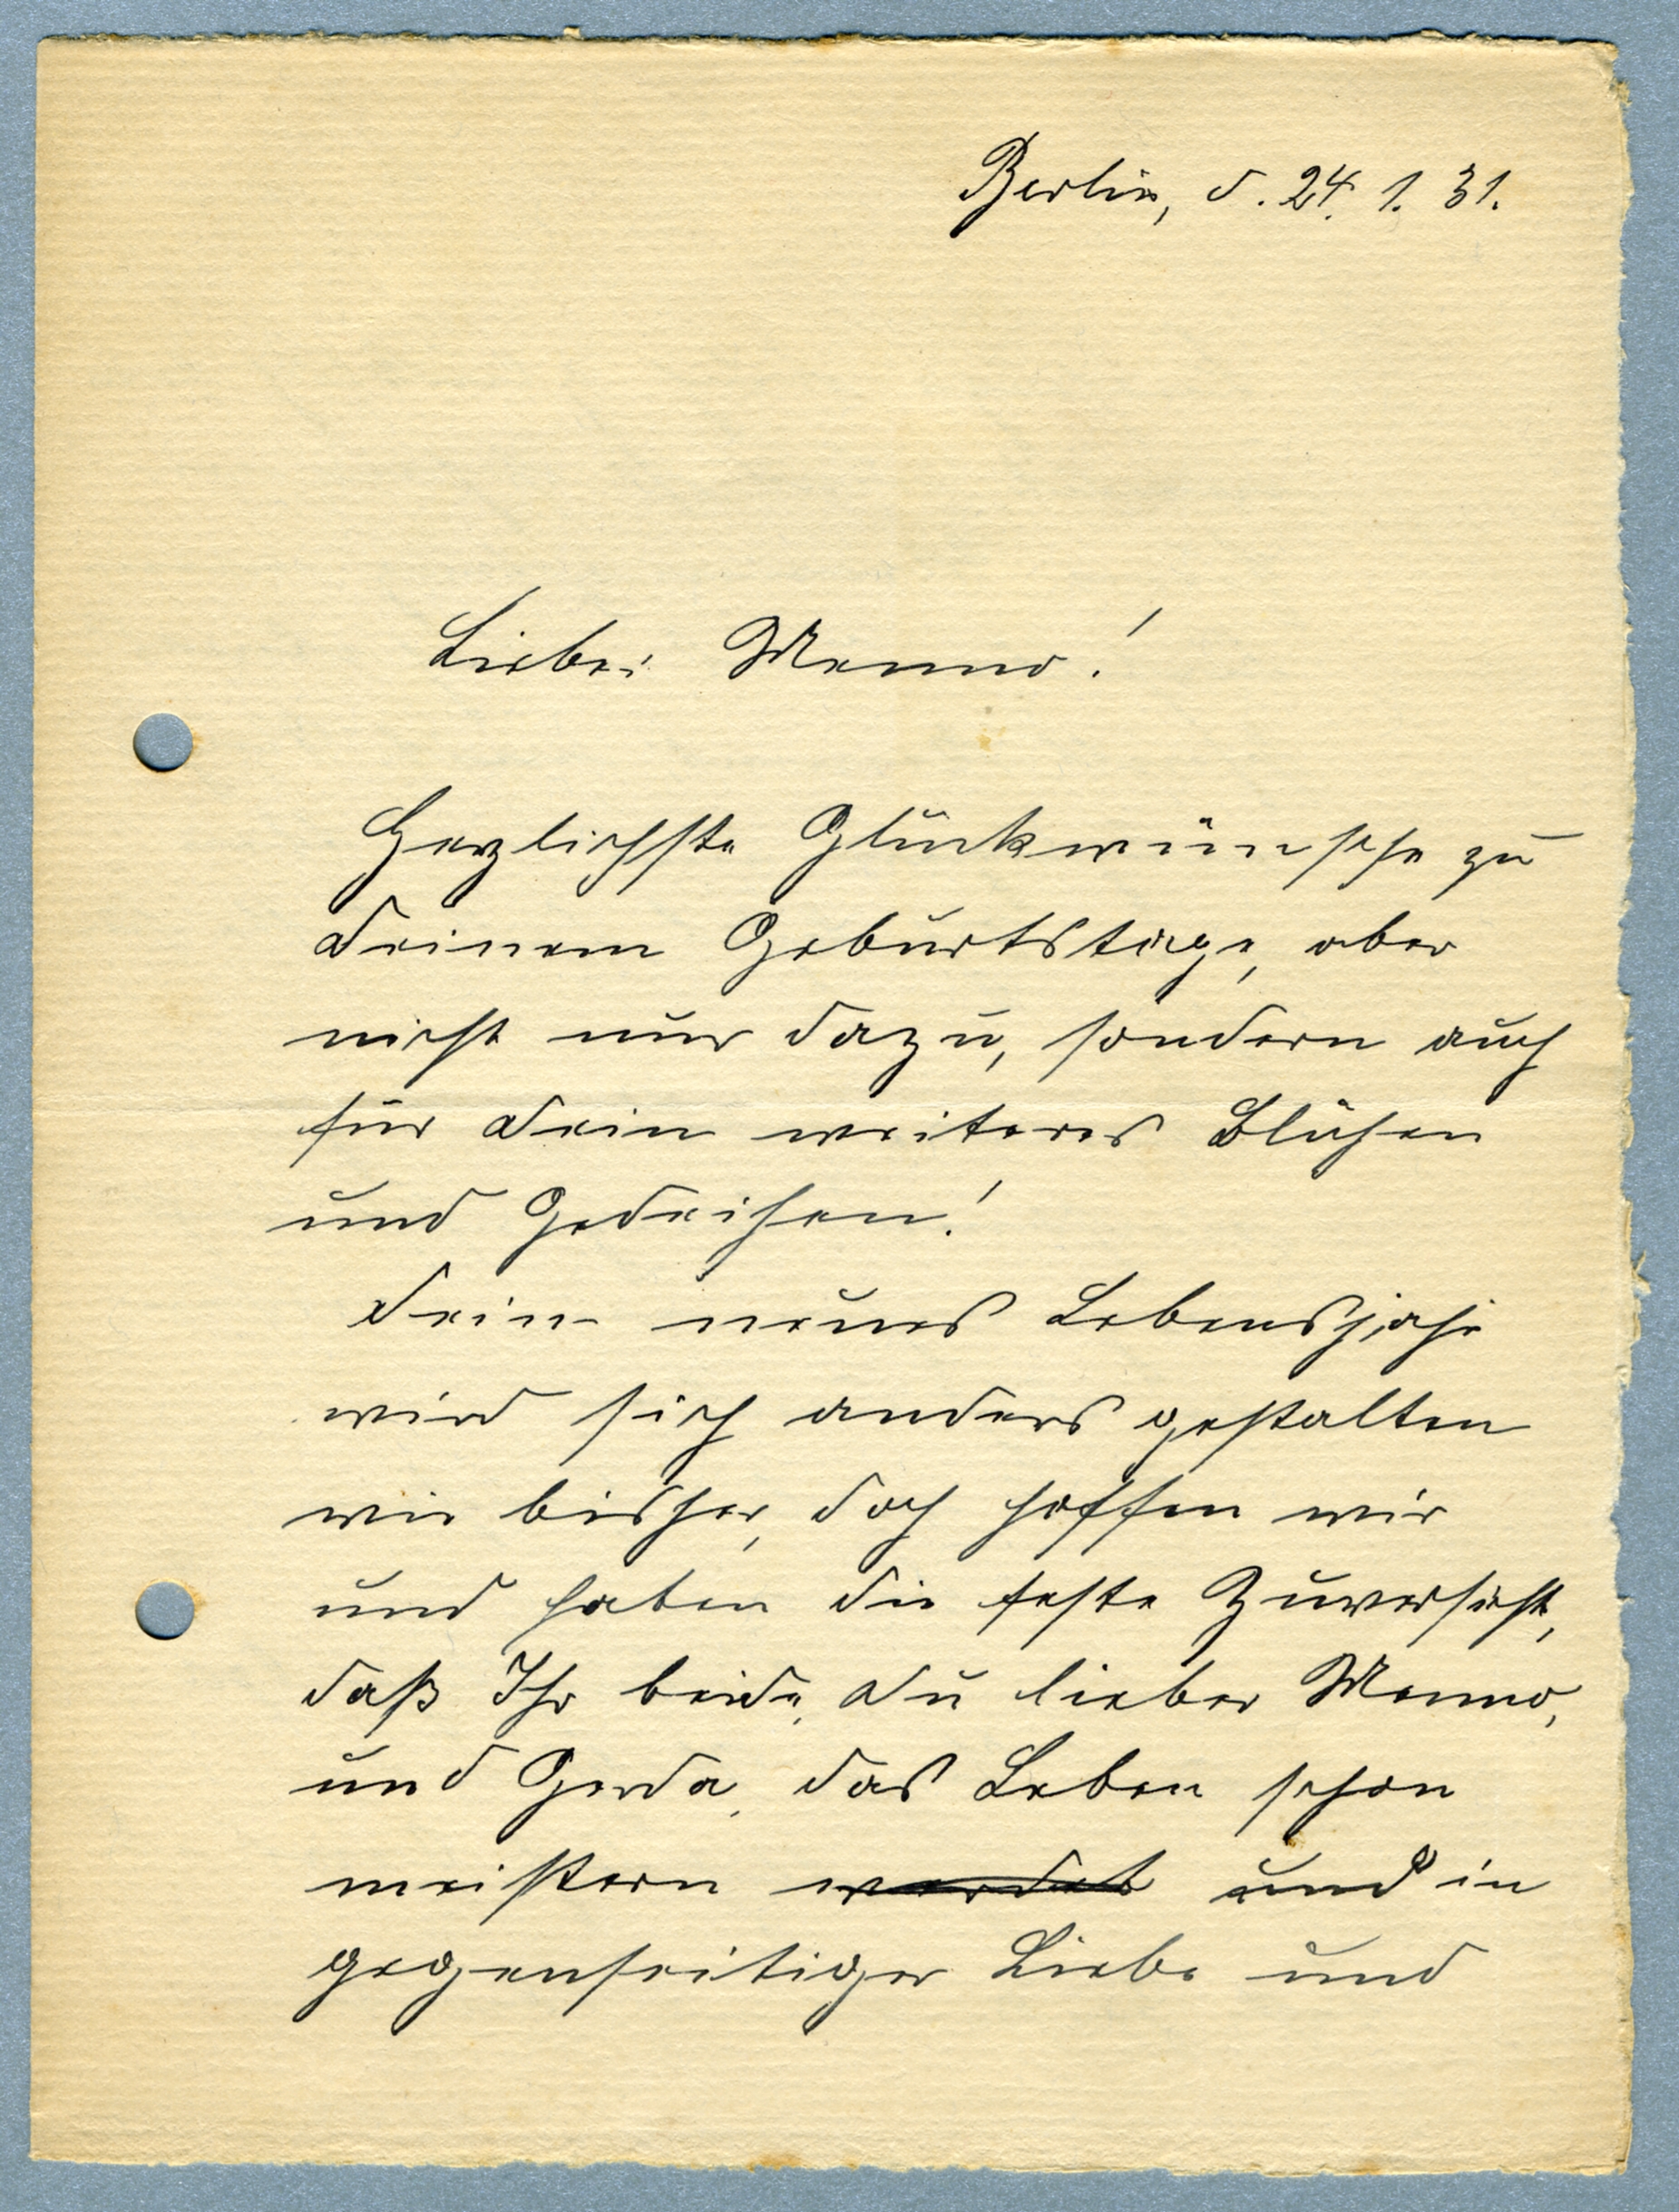 Berlin, d. 24. 1. 31.
Lieber Menno!
Herzlichste Glückwünsche zu
Deinem Geburtstage, aber
nicht nur dazu, sondern auch
für Dein weiteres Blühen
und Gedeihen!
Dein neues Lebensjahr
wird sich anders gestalten
wie bisher, doch hoffen wir
und haben die feste Zuversicht,
daß Ihr beide, Du lieber Menno,
und Gerda, das Leben schon
meistern werdet und in
gegenseitiger Liebe und